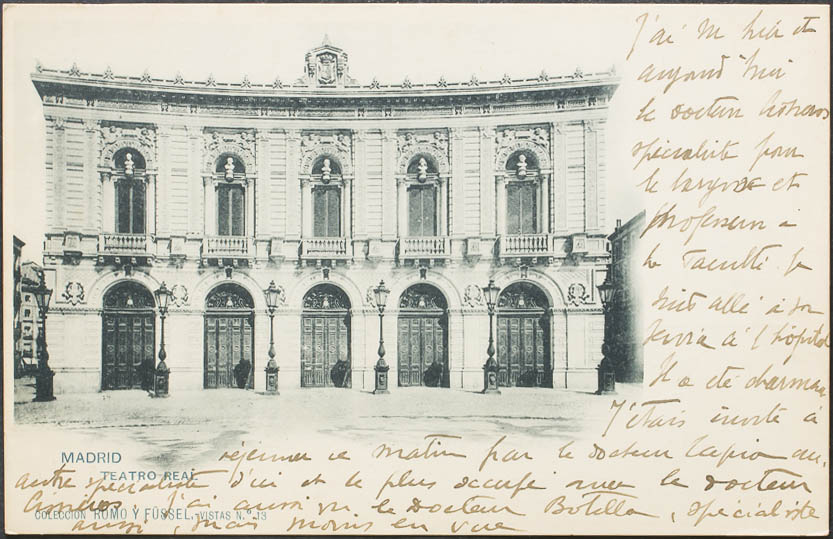 J'ai vu hier et
aujourd'hui
le docteur
spécialiste pour
le larynx et
professeur à
la Faculté. Je
suis allé à sa
à l'hôpital
Il a été charmant
J'étais invité à
déjeuner ce matin par le docteur Tapia au-
autre spécialiste d'ici et le plus occupé avec le docteur
Cisneros; J'ai aussi vu le Docteur Botella, spécialiste
aussi, mais moins en vue
MADRID
TEATRO REAL
COLECCIÓN ROMO Y FÜSSEL.-VISTAS N.º 13